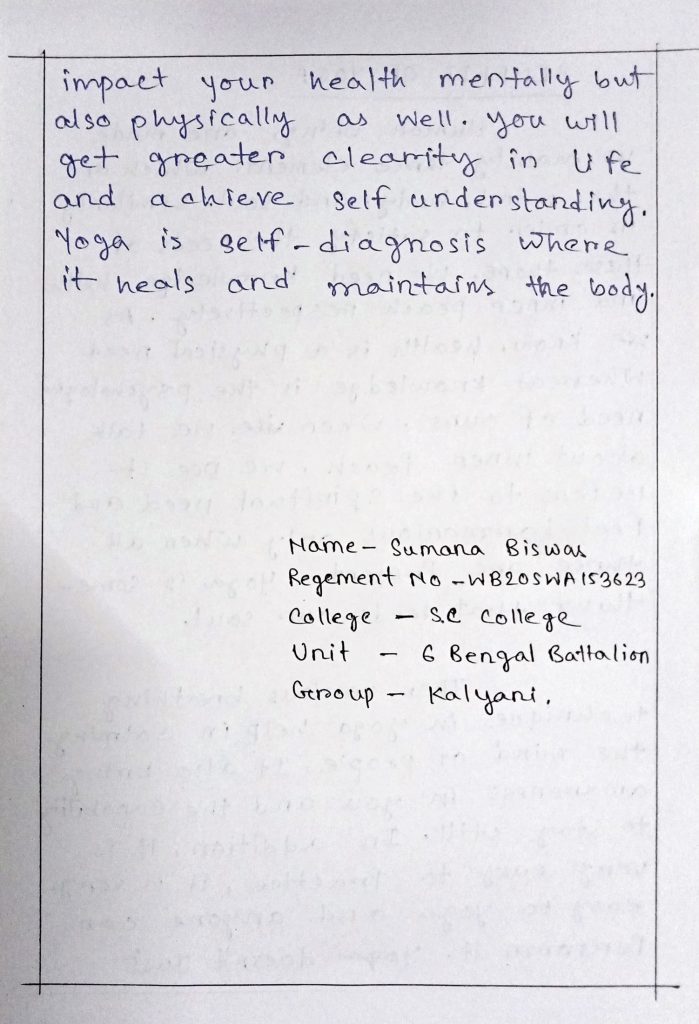 impact your health mentally but
also physically as well. you will
get greater clearrity in life
and achieve self understanding.
Yoga is self-diagnosis where
it heals and maintains the body.
Name - Sumana Biswas
Regement No - WB20SWA153623
College - S.C College
Unit - 6 Bengal Battalion
Group - Kalyani.